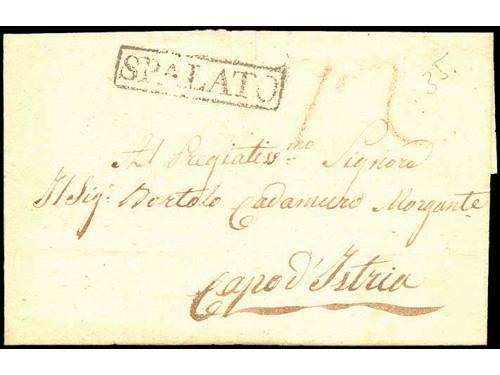 SPALATO
35.
Al Pregiatiss.mo Signore
Il Sigr. Bortolo Cadamuro Morgante
Capo d'Istria